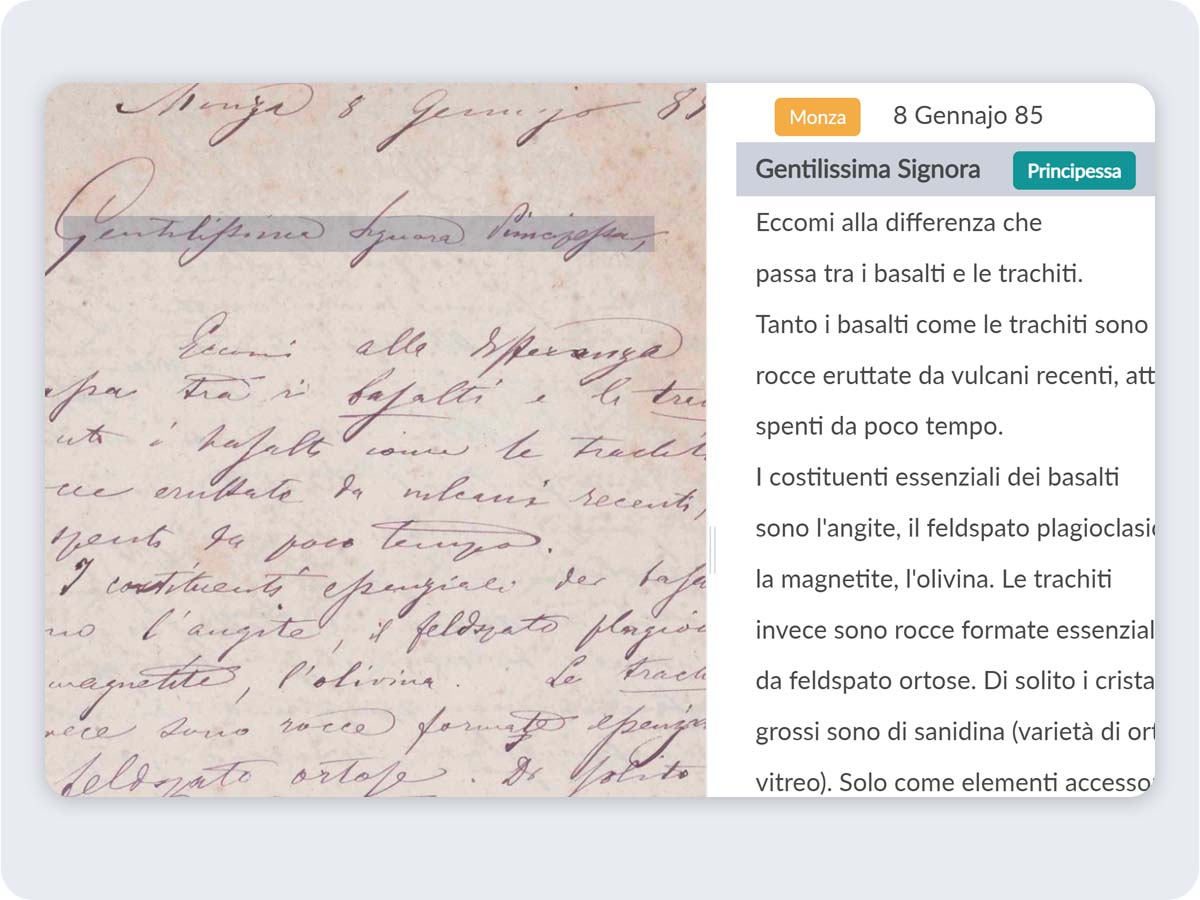 Monza 8 Gennajo 85
Gentilissima Signora Principessa,
Eccomi alla differenza
tra i basalti e le
i basalti come le trachit
eruttate da vulcani recenti,
spenti da poco tempo.
I costituenti essenziali dei basa
l'angite, il feldspato plagioc
magnetite, l'olivina. Le trach
sono rocce formate essenzia
feldspato ortose. Di solito
Monza 8 Gennajo 85
Gentilissima Signora Principessa
Eccomi alla differenza che
passa tra i basalti e le trachiti.
Tanto i basalti come le trachiti sono
rocce eruttate da vulcani recenti, att
spenti da poco tempo.
I costituenti essenziali dei basalti
sono l'angite, il feldspato plagioclasic
la magnetite, l'olivina. Le trachiti
invece sono rocce formate essenzial
da feldspato ortose. Di solito i crista
grossi sono di sanidina (varietà di ort
vitreo). Solo come elementi accesso